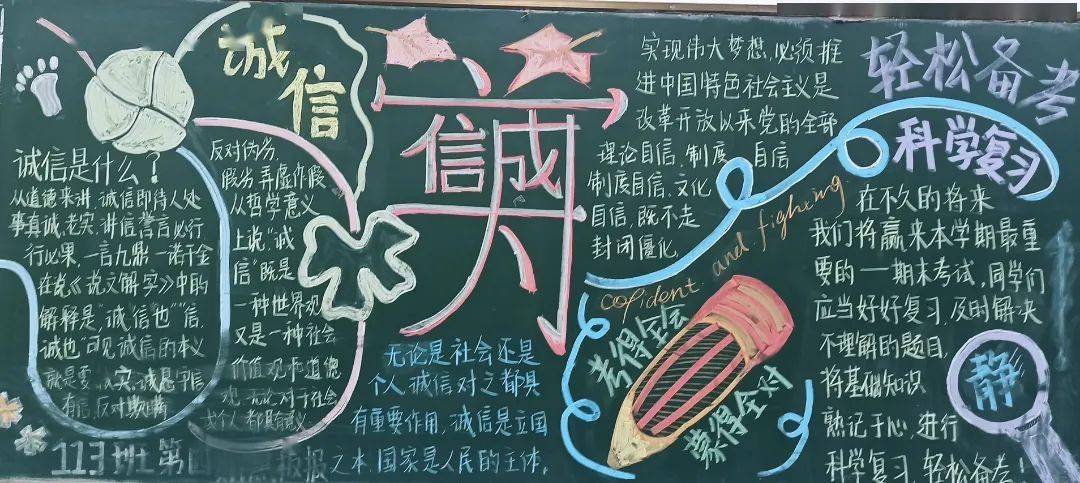 诚信
诚信是什么？
从道德来讲,诚信即待人处
事真诚,老实,讲信誉言必行
行必果,一言九鼎 一诺千金
在《说文解字》中的
解释是"诚,信也""信,
诚也"可见诚信的本义
就是要
有信,反对欺瞒
反对伪劣,
假劣,弄虚作假
从哲学意义
上说"诚
信"既是
一种世界观
又是一种社会
价值观和道德
观,无论对于社会
个人都
信成
实现伟大梦想,必须推
进中国特色社会主义是
改革开放以来党的全部
理论自信,制度 自信
制度自信,文化
自信,既不走
封闭僵化
无论是社会还是
个人,诚信对之都具
有重要作用,诚信是立国
之本,国家是人民的主体。
cofident and fighting
考得全会
蒙得全对
轻松备考
科学复习
在不久的将来
我们将赢来本学期最重
要的一期末考试,同学们
应当好好复习,及时解决
不理解的题目,
将基础知识
熟记于心,进行
科学复习,轻松备考!
静
113班第
报